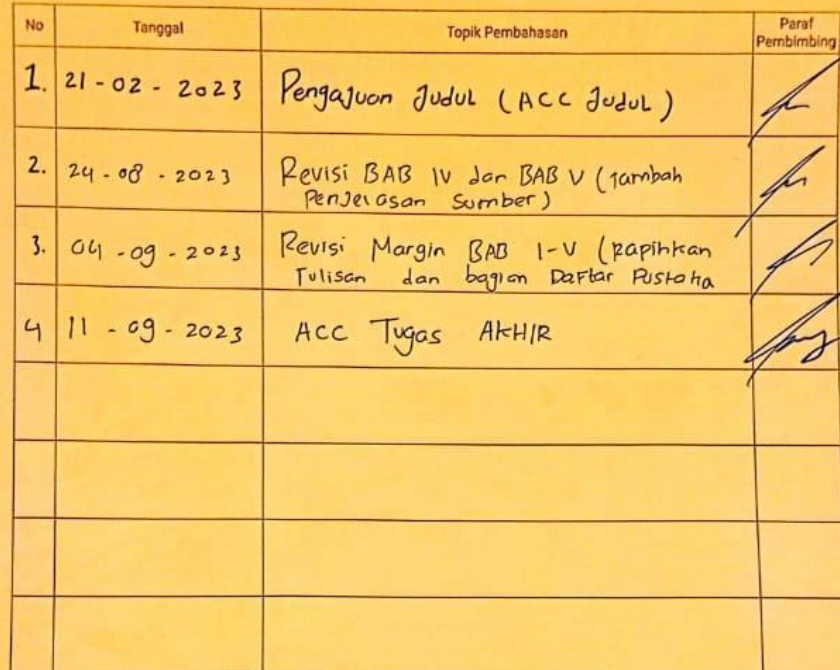 No Tanggal Topik Pembahasan Paraf Pembimbing
1. 21-02-2023 Pengajuan Judul (ACC Judul)
2. 24-08-2023 Revisi BAB IV dan BAB V (Tambah
Penjelasan Sumber)
3. 04-09-2023 Revisi Margin BAB I-V (Rapihkan
Tulisan dan bagian Daftar Pustaka
4 11-09-2023 ACC Tugas AKHIR